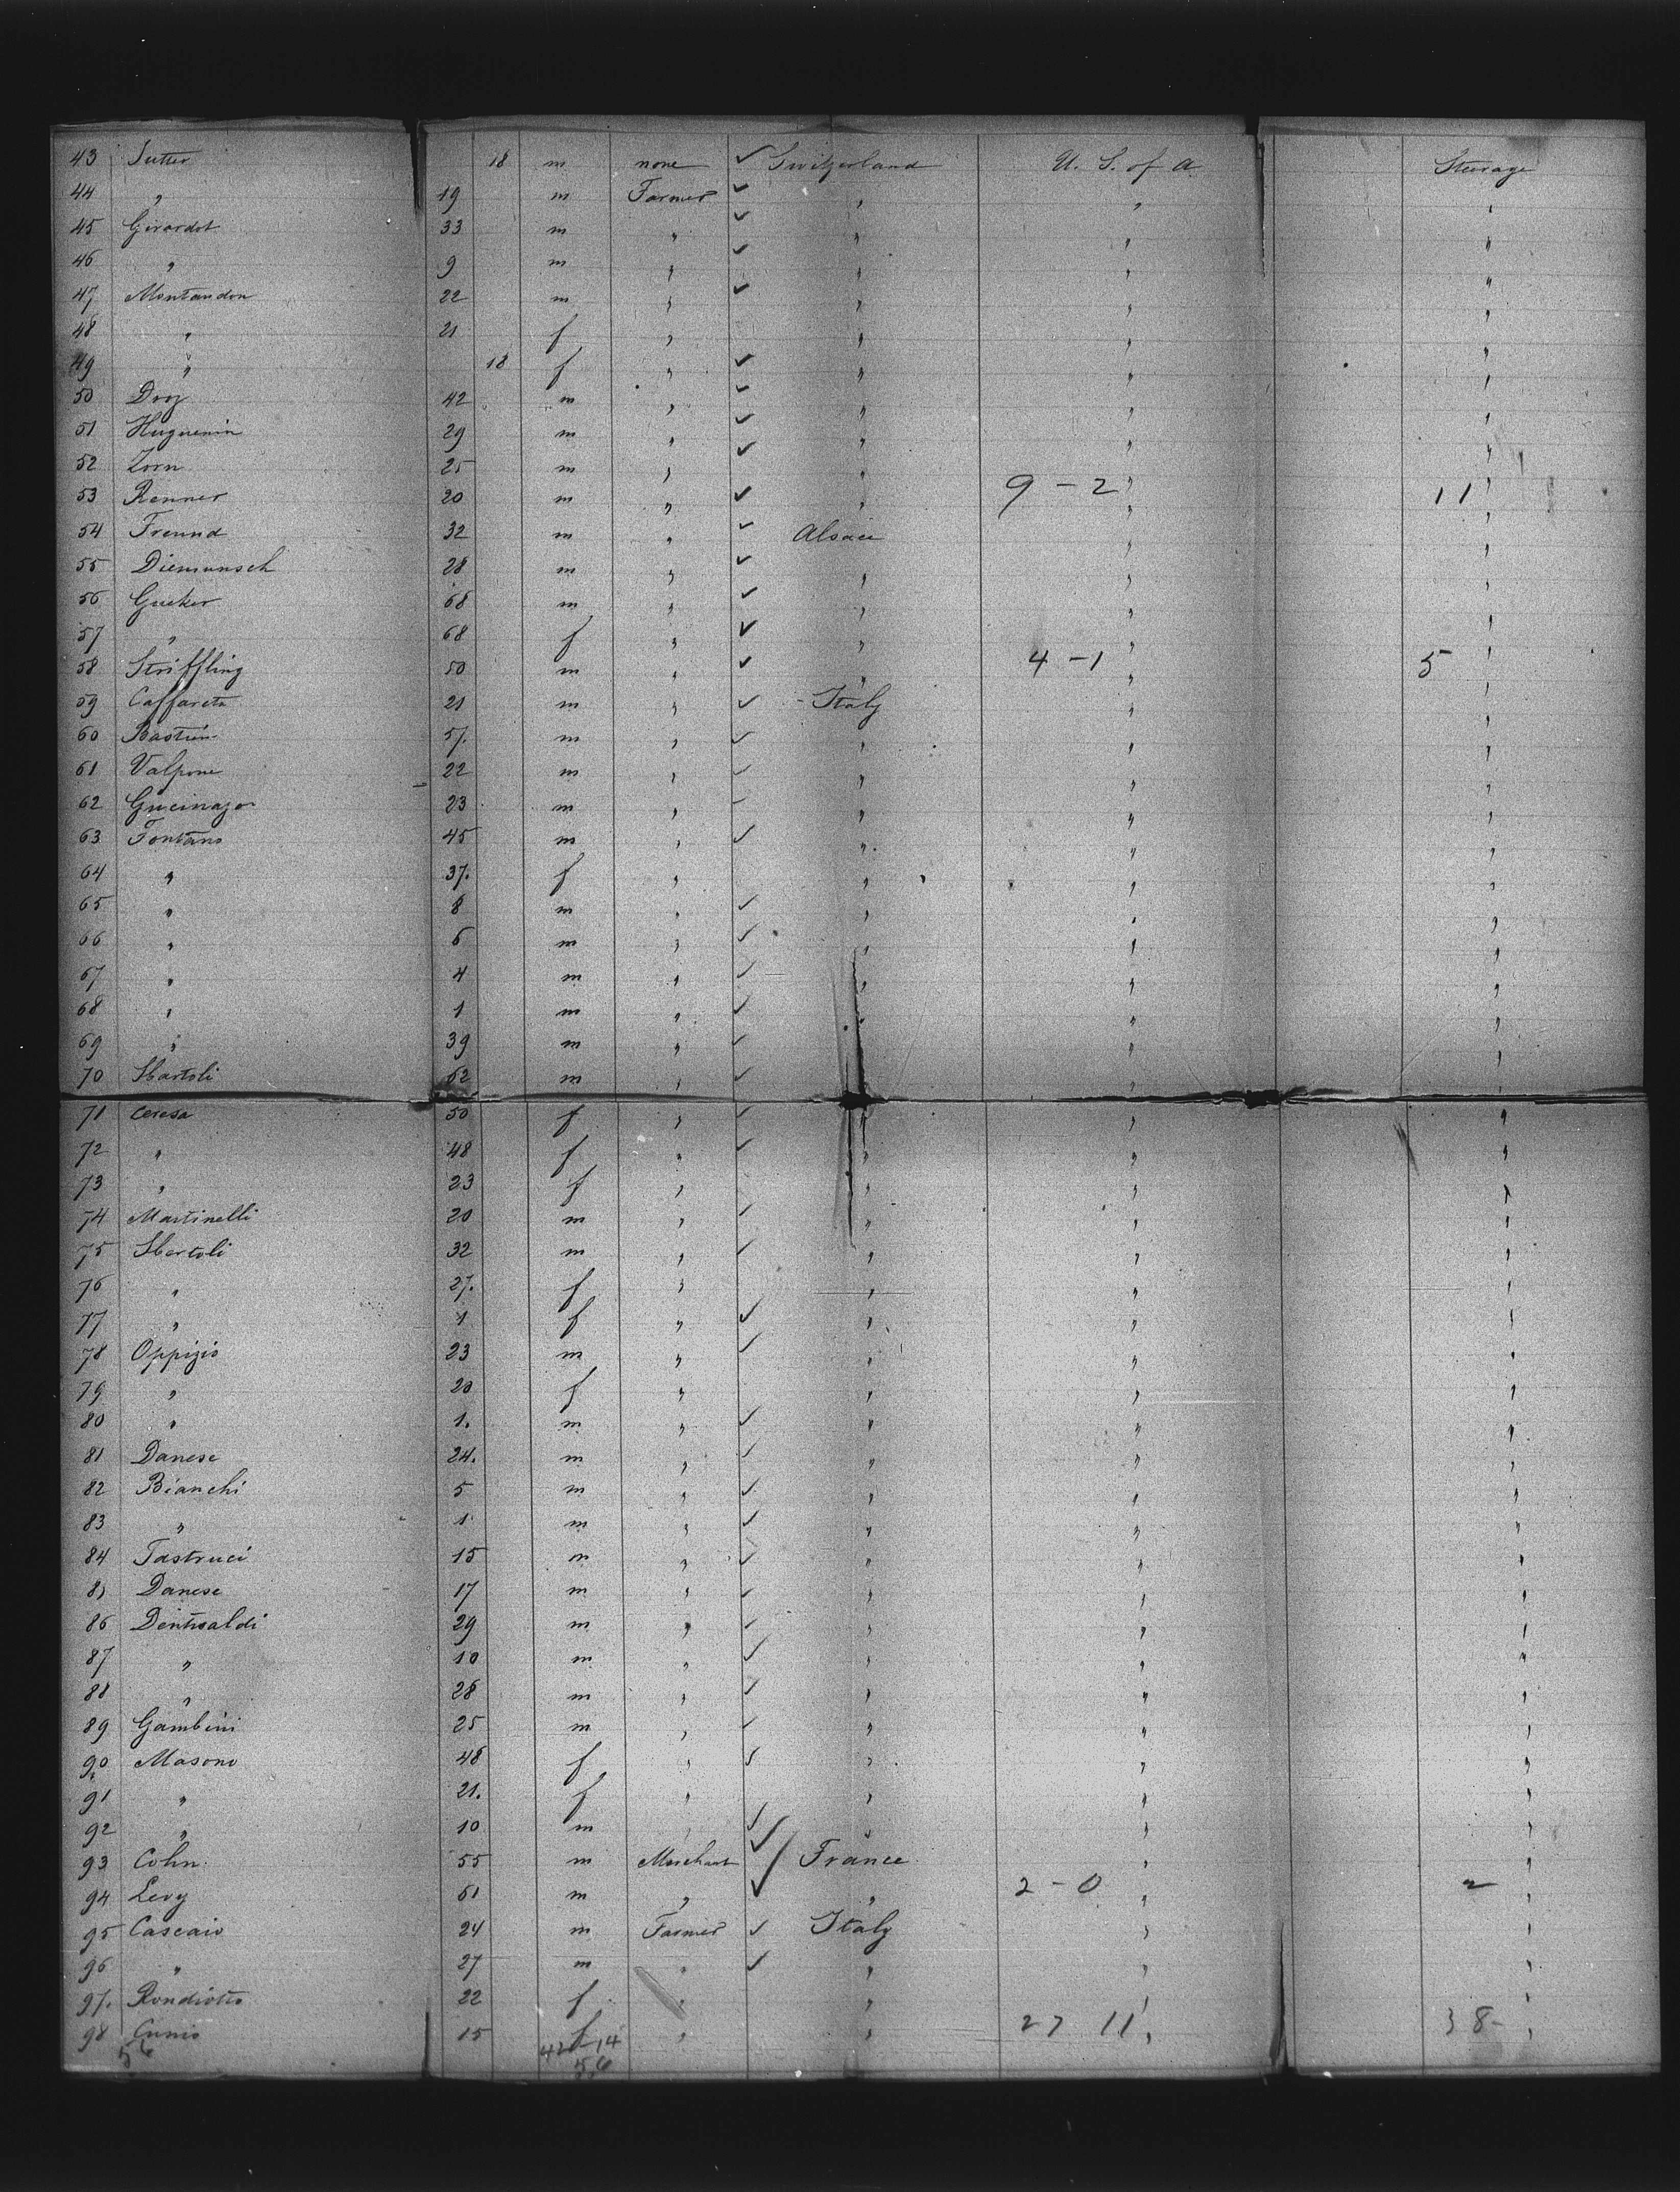 43 Sutter 18 m none ✓ Switzerland U. S. of A. Steerage
44 " 19 m Farmer ✓ " " "
45 Girardot 33 m " ✓ " " "
46 " 9 m " ✓ " " "
47 Montandon 22 m " ✓ " " "
48 " 21 f " " " "
49 " 18 f " ✓ " " "
50 Droz 42 m " ✓ " " "
51 Huguenin 29 m " ✓ " " "
52 Zorn 25 m " ✓ " " "
53 Renner 20 m " ✓ " 9 - 2 " 11 "
54 Freund 32 m " ✓ Alsace " "
55 Diemunsch 28 m " ✓ " " "
56 Gucker 68 m " ✓ " " "
57 " 68 f " ✓ " " "
58 Striffling 50 m " ✓ " 4 - 1 " 5 "
59 Caffareta 21 m " ✓ - Italy " "
60 Bastien 57. m " ✓ " " "
61 Valpone 22 m " ✓ " " "
62 23 m " ✓ " " "
63 Fontano 45 m " ✓ " " "
64 " 37. f " " " "
65 " 8 m " ✓ " " "
66 " 6 m " ✓ " " "
67 " 4 m " ✓ " " "
68 " 1 m " ✓ " " "
69 " 39 m " ✓ " " "
70 Sbartoli 62 m " ✓ " "
71 Ceresa 50 f " ✓ " " "
72 " 48 f " ✓ " " "
73 " 23 f " " " "
74 Martinelli 20 m " ✓ " " "
75 Sbartoli 32 m " ✓ " " "
76 " 27. f " " " "
77 " 1 f " ✓ " " "
78 Oppizio 23 m " ✓ " " "
79 " 20 f " " " "
80 " 1. m " ✓ " " "
81 Danese 24. m " ✓ " " "
82 Bianchi 5 m " ✓ " " "
83 " 1 m " ✓ " " "
84 Tastruci 15 m " ✓ " " "
85 Danese 17 m " ✓ " " "
86 29 m " ✓ " " "
87 " 10 m " ✓ " " "
88 " 28 m " ✓ " " "
89 Gambini 25 m " ✓ " " "
90 Masono 48 f " " " "
91 " 21. f " " " "
92 " 10 m " ✓ " " "
93 Cohn 55 m Merchant ✓ France " "
94 Levy 61 m " ✓ " 2 - 0 " 2 "
95 Cascaio 24 m Farmer ✓ Italy " "
96 " 27 m " ✓ " " "
97. Rondiotto 22 f " " " "
98 Cunio 15 f " " 27 11 " 38 - "
56 42 14
56